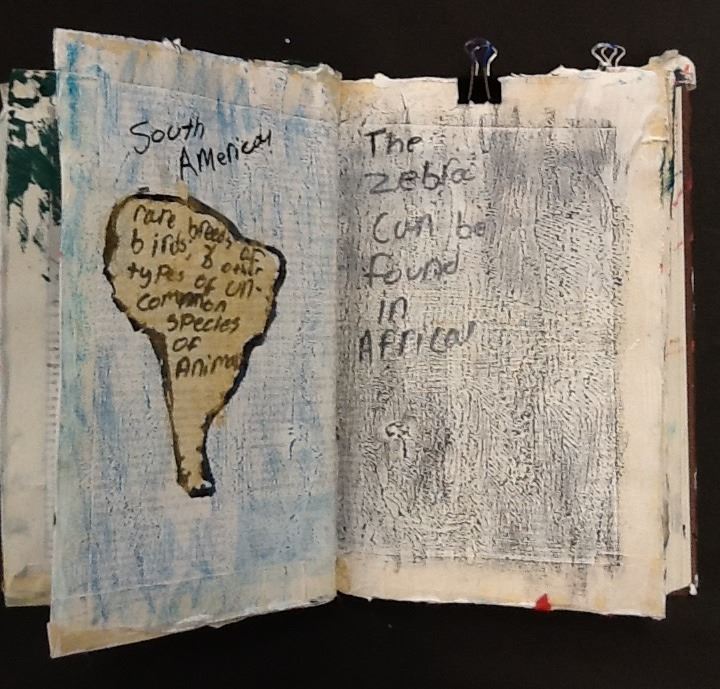 South
America
rare breeds of
birds, & other
types of un-
common
species
of
Animals
The
zebra
can be
found
in
Africa